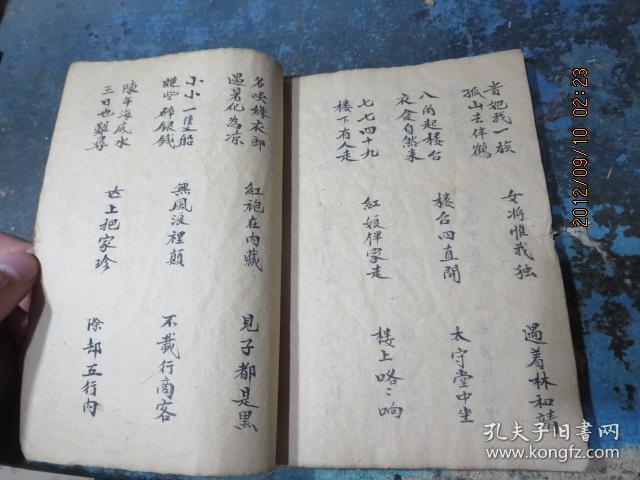 貴妃我一族
女将惟我独
遇着林和靖
孤山去伴鶴
八角起楼台
楼台四直開
太守堂中坐
衣食自然来
七七四十九
紅娘伴家走
楼上咯々响
楼下有人走
名唤緑衣郎
紅袍在内藏
見子都是黑
遇暑化為凉
小小一隻船
無風浪裡顛
不載行商客
碎銀錢
陳年海底水
世上把家珍
除却五行内
三日也難尋
2012/09/10 02:23
孔夫子旧书网
kongfz.com